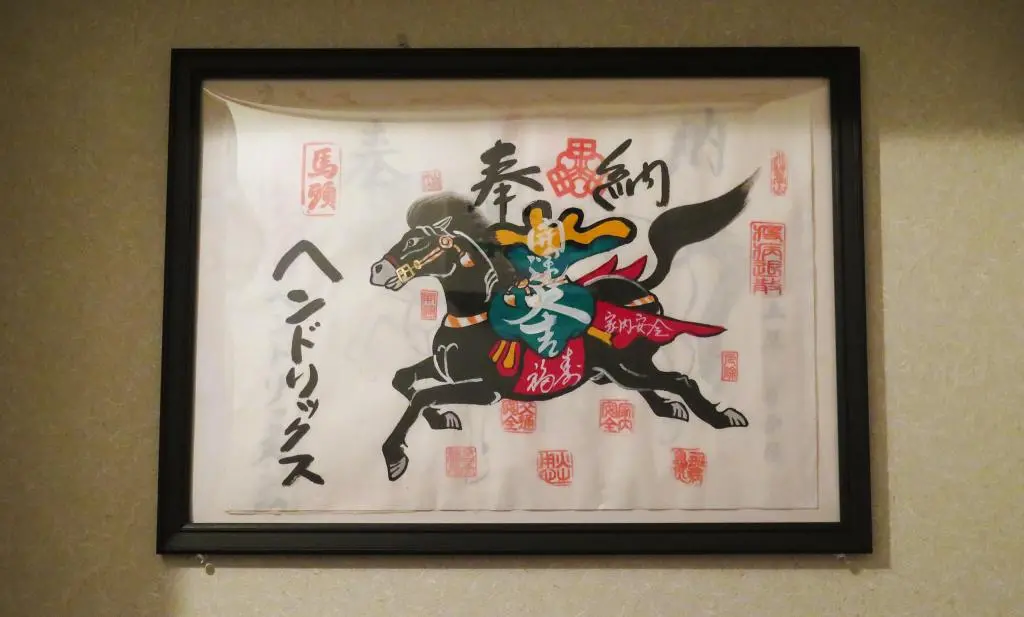 奉納
馬頭
疫病退散
開運大吉
家内安全
福寿
ヘンドリックス
交通安全
家内安全